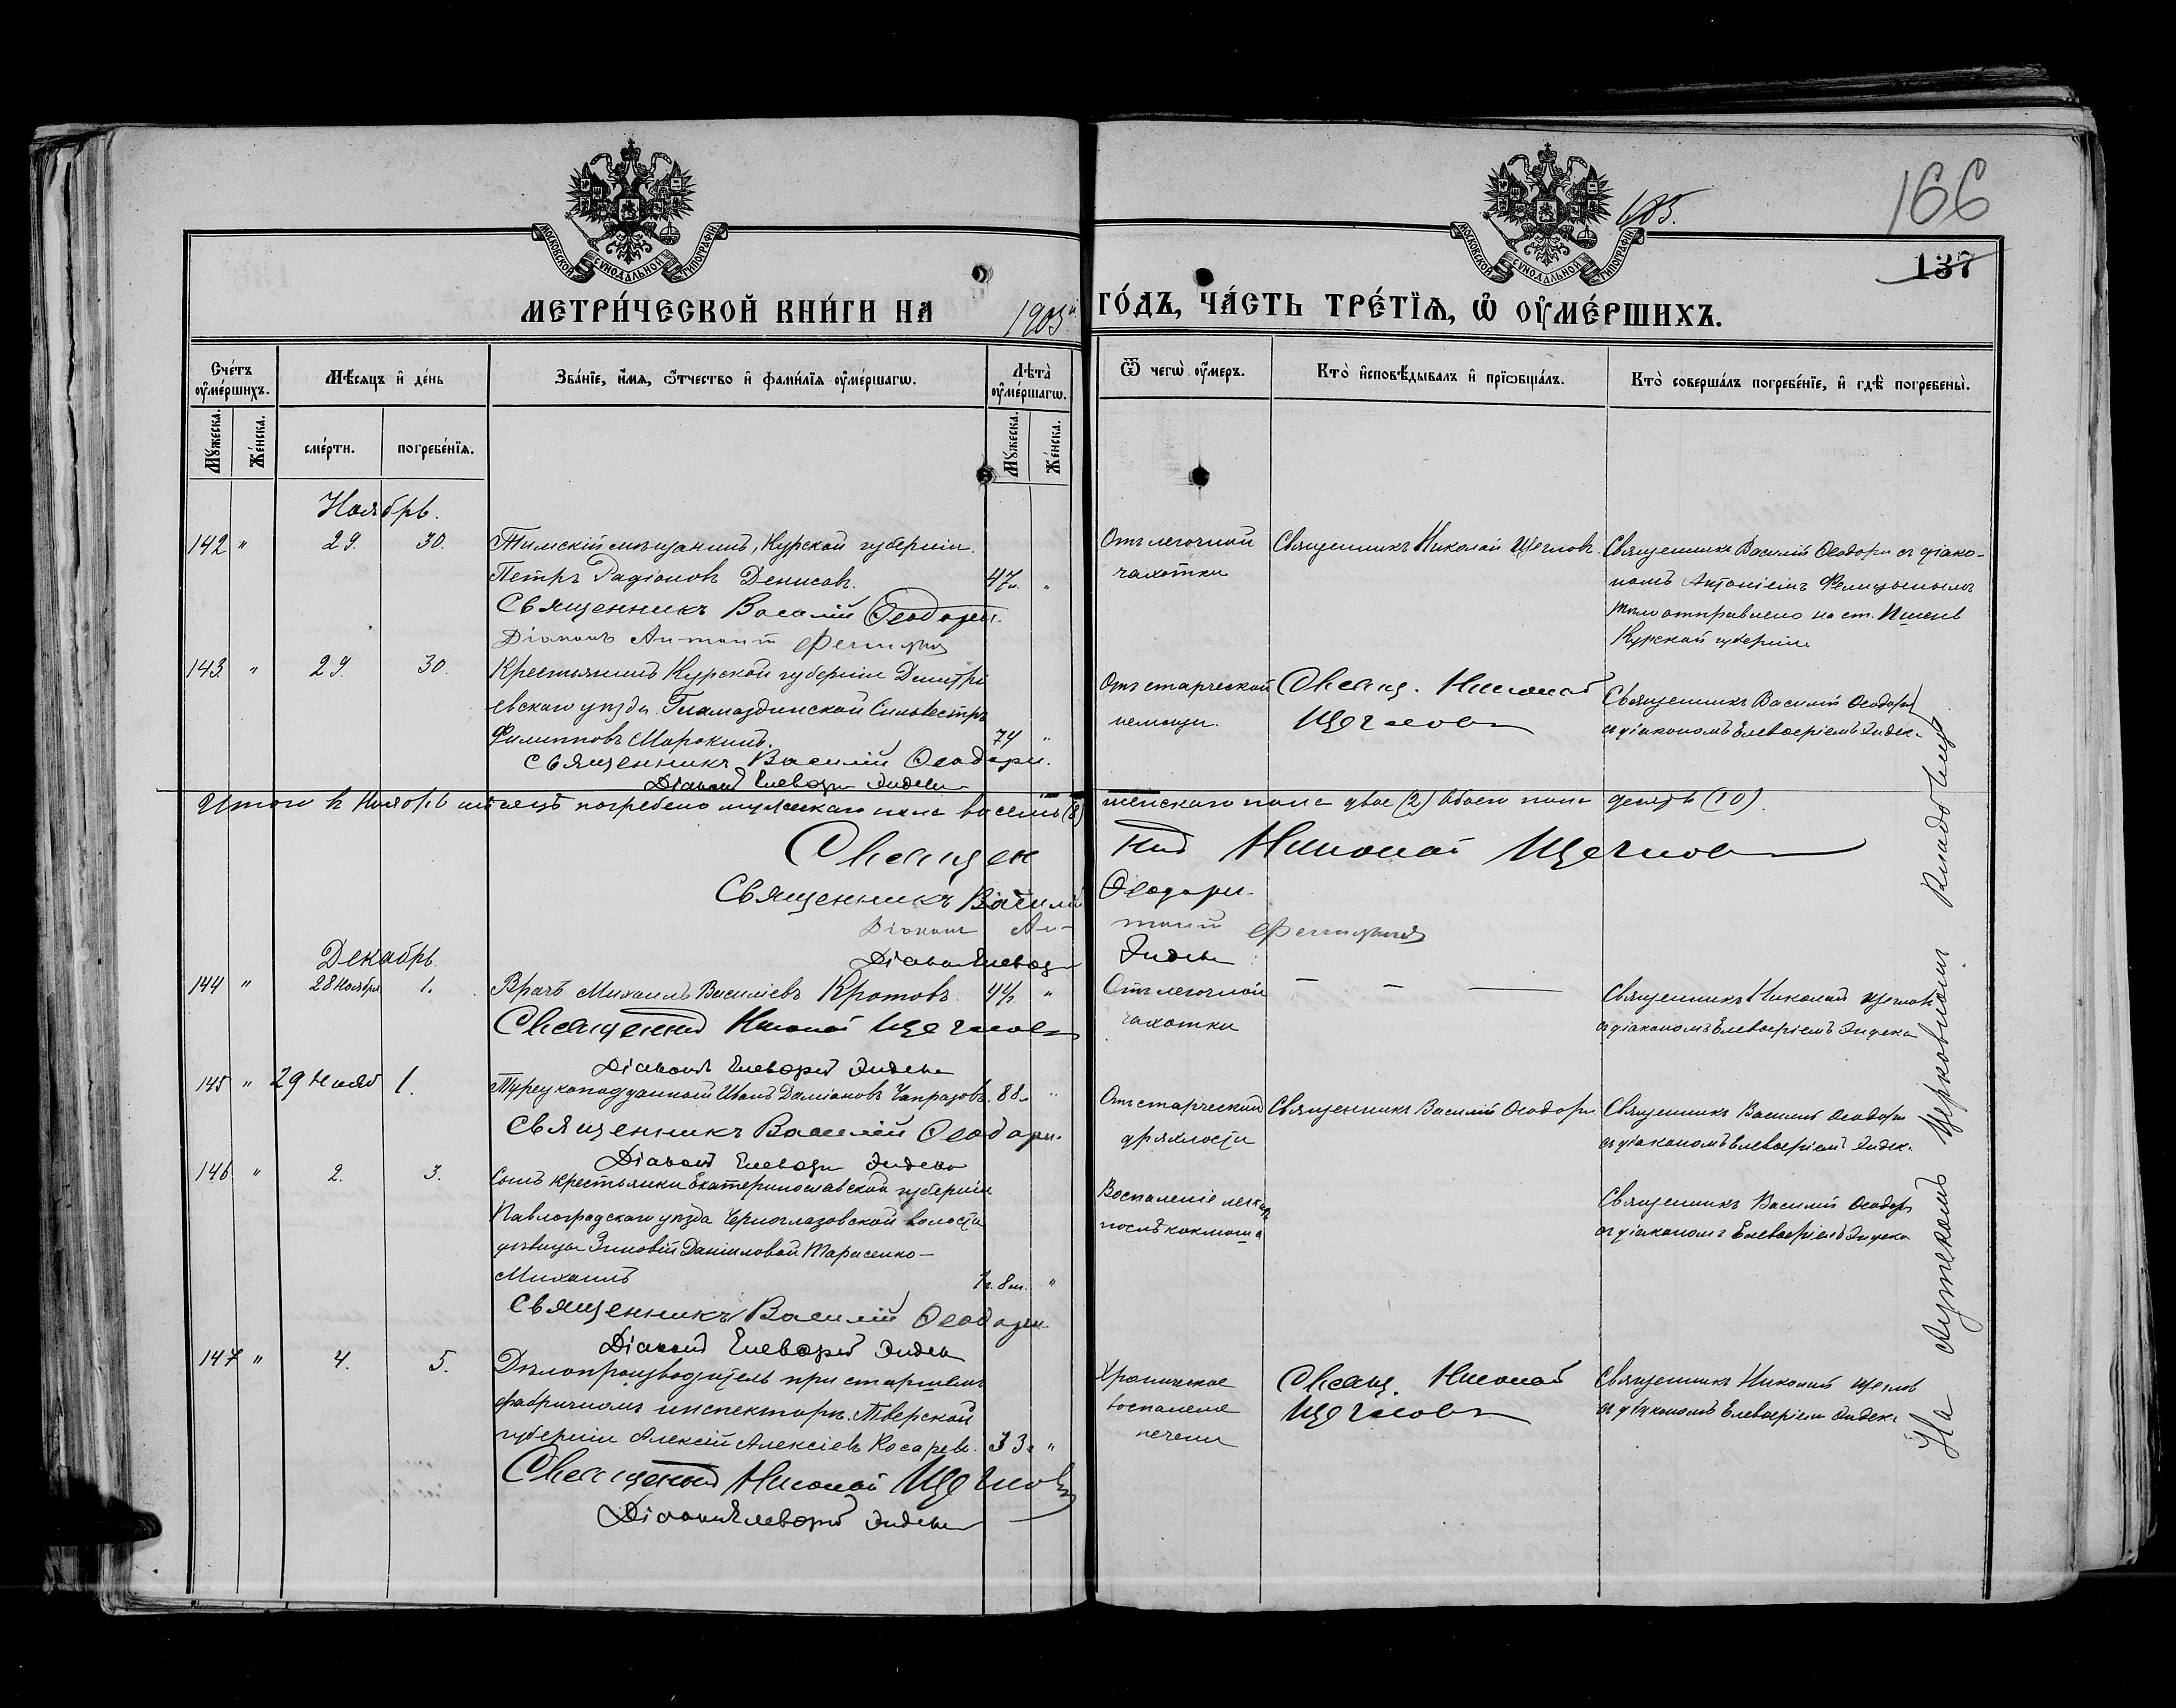 МОСКОВСКОЙ СѴНОДАЛЬНОЙ ТИПОГРАФІИ
МОСКОВСКОЙ СѴНОДАЛЬНОЙ ТИПОГРАФІИ
166
137
МЕТРИ́ЧЕСКОЙ КНИ́ГИ НА 1903 ГО́ДЪ, ЧА́СТЬ ТРЕ́ТЇѦ, Ѡ҆ ОУ҆МЕ́РШИХЪ.
Сче́тъ оу҆ме́ршихъ.
Мѣ́сяцъ и҆ де́нь
Зва́нїе, и҆́мя, ѻ҆́тчество и҆ фами́лїя оу҆ме́ршагѡ.
Лѣ́та оу҆ме́ршагѡ.
Ѿ чегѡ̀ оу҆́меръ.
Кто̀ и҆сповѣ́дывалъ и҆ прїѡбща́лъ.
Кто̀ соверша́лъ погребе́нїе, и҆ гдѣ̀ погребены̀.
Мꙋ́жеска.
Же́нска.
сме́рти.
погребе́нїя.
Мꙋ́жеска.
Же́нска.
Ноябрь.
142 " 29. 30. Тимскій мѣщанинъ, Курской губерніи.
Петръ Радіоновъ Денисовъ. 47л. "
Священникъ Василій Ѳеодори.
Діаконъ Антоній
Отъ легочной
чахотки
Священникъ Николай Щегловъ.
Священникъ Василій Ѳеодори съ діако-
номъ Антоніемъ
тѣло отправлено на ст.
Курской губерніи
143. " 29. 30. Крестьянинъ Курской губерніи Дмитрі
евскаго уѣзда Сильвестръ
Филипповъ Морокинъ. 74 "
Священникъ Василій Ѳеодори.
Діаконъ Елевѳерій Эндека
Отъ старческой
немощи.
Священ. Николай
Щегловъ
Священникъ Василій Ѳеодори
съ діакономъ Елевѳеріемъ Эндек.
Итого въ Ноябрѣ мѣсяцѣ погребено мужескаго пола восемь (8) женскаго пола двое (2) обоего пола десять (10).
Священникъ Николай Щегловъ
Священникъ Василій Ѳеодори.
Діаконъ Антоній
Діаконъ Елевѳерій Эндека
Декабрь.
144 " 28 Ноября 1. Врачъ Михаилъ Василіевъ Кротовъ. 44г. "
Священникъ Николай Щегловъ
Діаконъ Елевѳерій Эндека
Отъ легочной
чахотки
Священникъ Николай Щегловъ
съ діакономъ Елевѳеріемъ Эндека
145 " 29 Нояб 1. Турецкоподданный Иванъ Даміановъ Чапразовъ. 88л "
Священникъ Василій Ѳеодори.
Діаконъ Елевѳерій Эндека
Отъ старческой
дряхлости
Священникъ Василій Ѳеодори
Священникъ Василій Ѳеодори
съ діакономъ Елевѳеріемъ Эндек.
146 " 2. 3. Сынъ крестьянки Екатеринославской губерніи
Павлоградскаго уѣзда Черноглазовской волости
дѣвицы Зиновіи Даніиловой Тарасенко –
Михаилъ 1г. 8м. "
Священникъ Василій Ѳеодори
Діаконъ Елевѳерій Эндека
Воспаленіе легкихъ
послѣ коклюша
Священникъ Василій Ѳеодори
съ діакономъ Елевѳеріемъ Эндека
147 " 4. 5. Дѣлопроизводитель при старшемъ
фабричномъ инспекторѣ Тверской
губерніи Алексій Алексіевъ Косарев. 33г "
Священникъ Николай Щегловъ
Діаконъ Елевѳерій Эндека
Хроническое
воспаленіе
печени
Священ. Николай
Щегловъ
Священникъ Николай Щегловъ
съ діакономъ Елевѳеріем Эндек.
На Аутскомъ церковномъ кладбищѣ